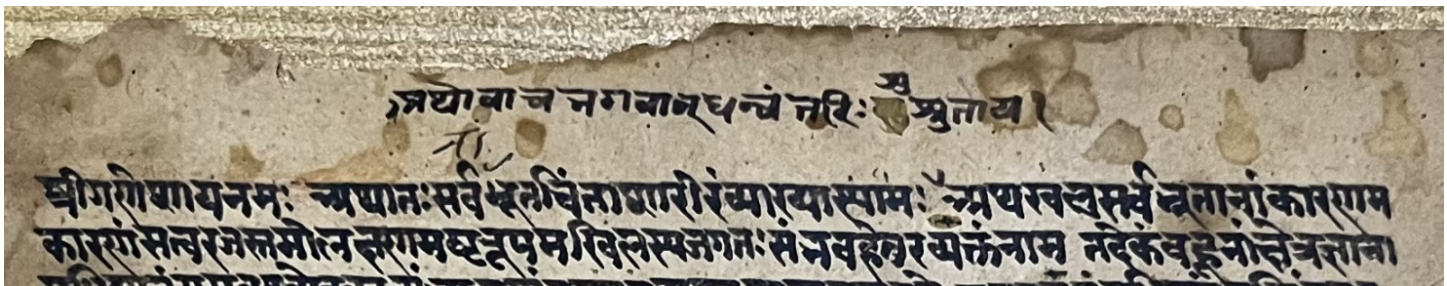 अथोवाच भगवान्धन्वंतरिः सु श्रुताय।
श्रीगणेशायनमः अथातःसर्वभूतचिंताशारीरंव्याख्यास्यामः अथखलुसर्वभूतानांकारणम
कारणंसत्वरजस्तमोलक्षणमष्टरूपमखिलस्यजगतःसंभवहेतुरव्यक्तंनाम तदेकंबहूनांक्षेत्रज्ञाना